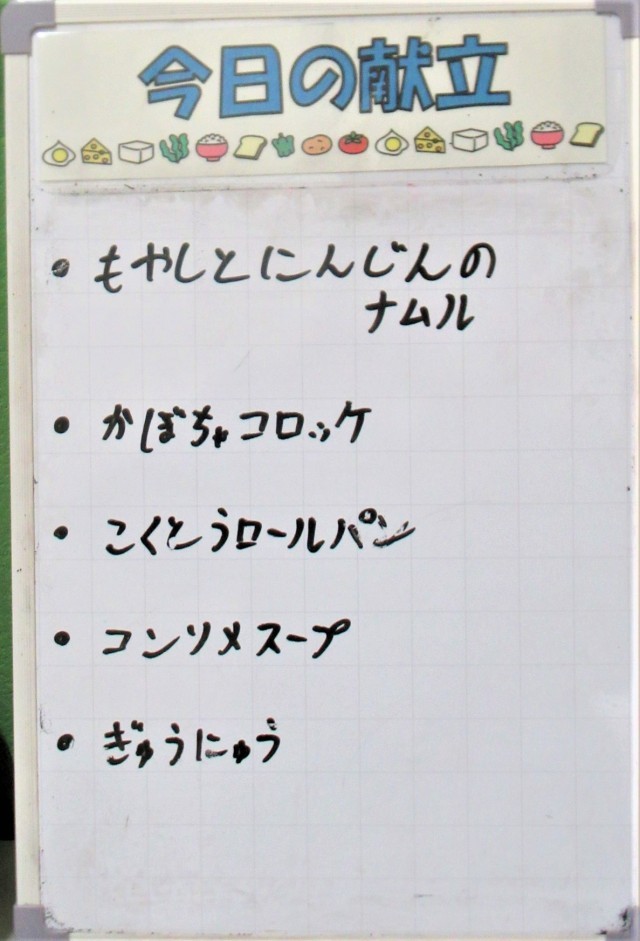 今日の献立
・もやしとにんじんの
ナムル
・かぼちゃコロッケ
・こくとうロールパン
・コンソメスープ
・ぎゅうにゅう